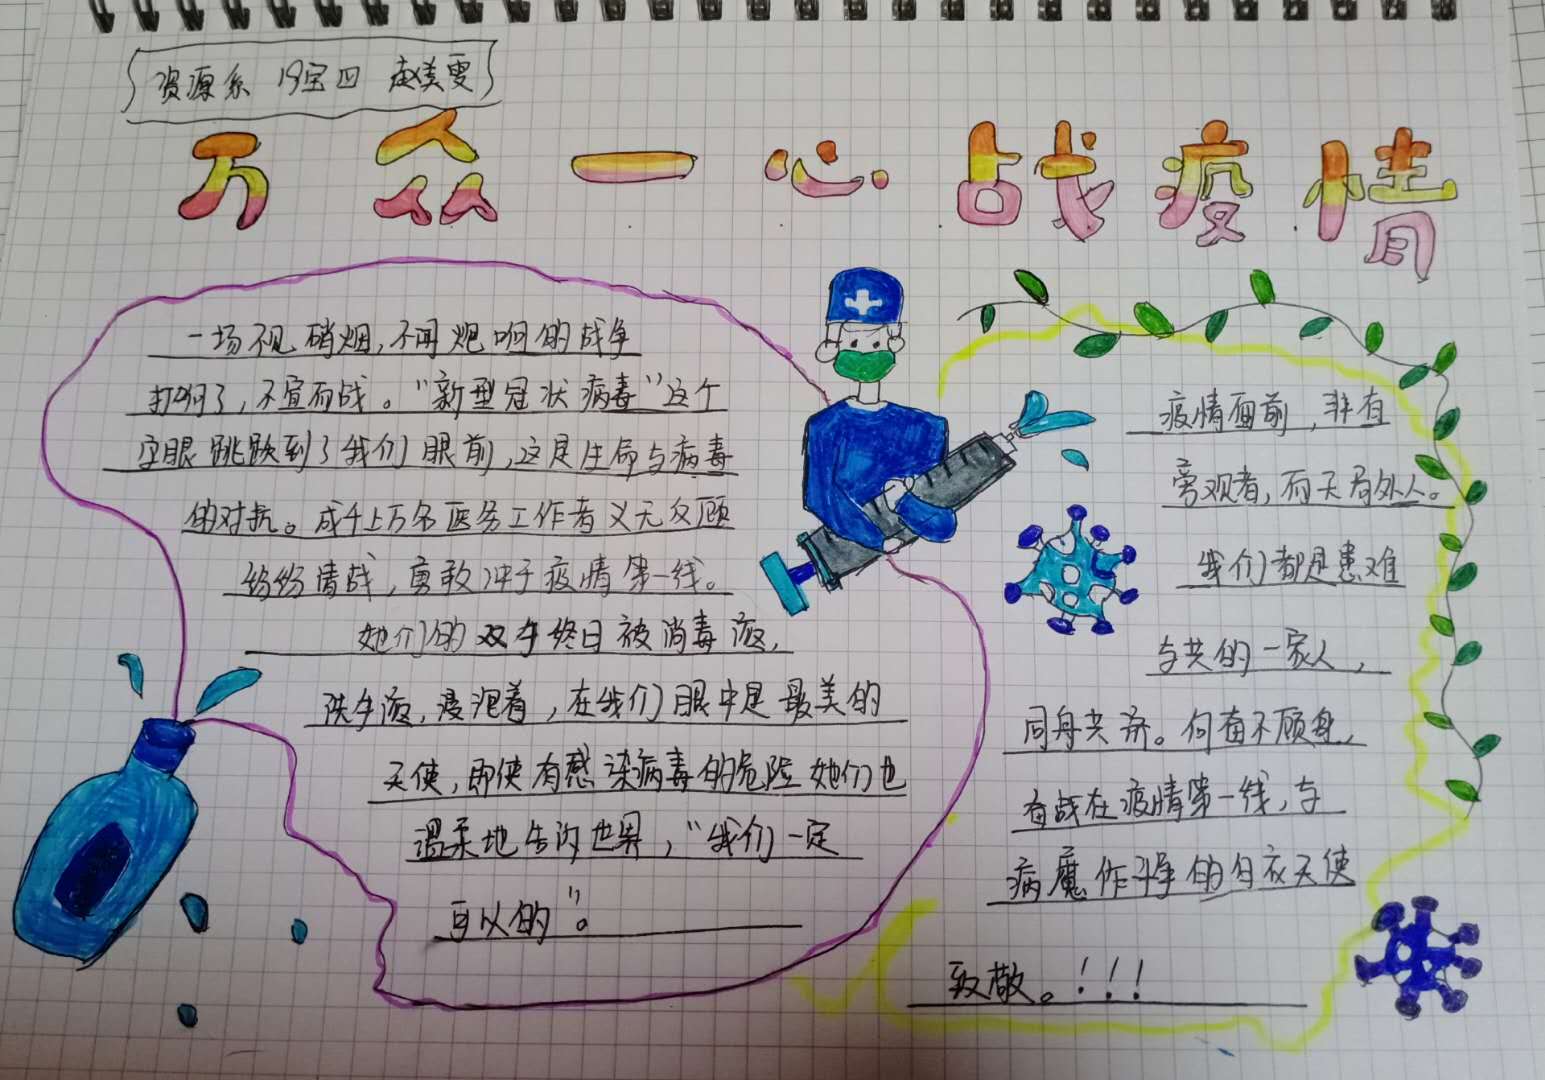 资源系 19宝四 赵美雯
万众一心战疫情
一场不见硝烟,不闻炮响的战争
打响了,不宣而战。“新型冠状病毒”这个
字眼跳跃到了我们眼前,这是生命与病毒
的对抗。成千上万名医务工作者义无反顾
纷纷请战,勇敢冲于疫情第一线。
她们的双手终日被消毒液,
洗手液,浸泡着,在我们眼中是最美的
天使,即使有感染病毒的危险她们也
温柔地告诉世界,“我们一定
可以的”。
疫情面前,非有
旁观者,而无局外人。
我们都是患难
与共的一家人,
同舟共济。向奋不顾身,
奋战在疫情第一线,与
病魔作斗争的白衣天使
致敬。!!!